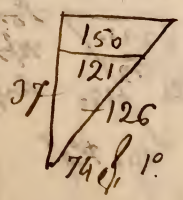 150
121
37
126
74
1º